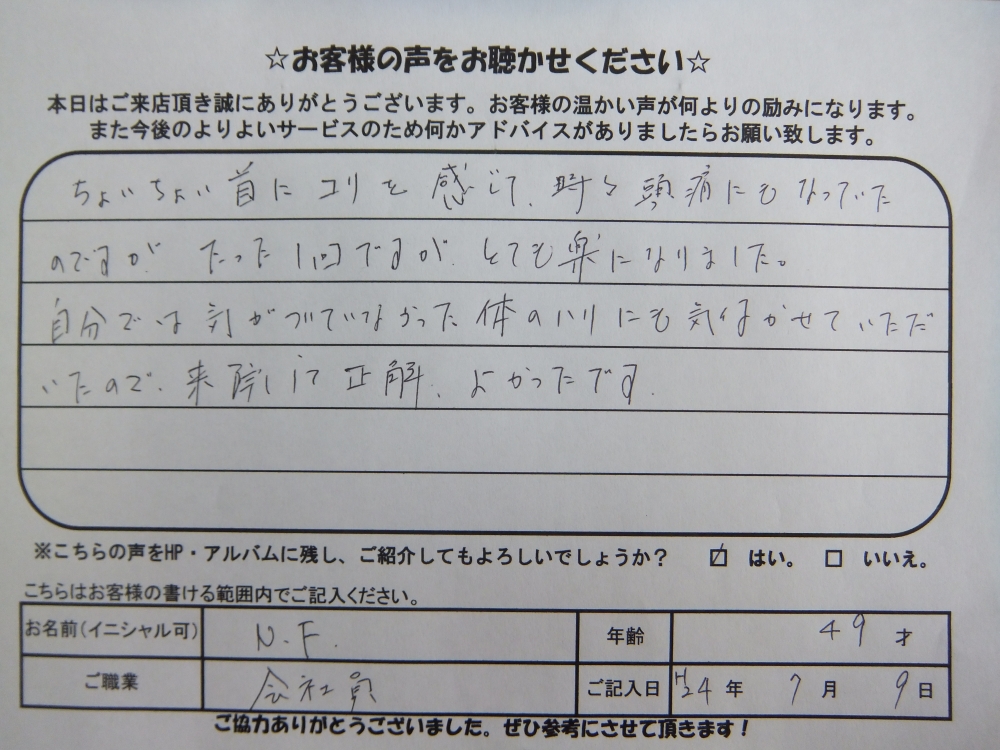 ☆お客様の声をお聴かせください☆
本日はご来店頂き誠にありがとうございます。お客様の温かい声が何よりの励みになります。
また今後のよりよいサービスのため何かアドバイスがありましたらお願い致します。
ちょいちょい首にコリを感じて、時々頭痛にもなっていた
のですが、たった1回ですが、とても楽になりました。
自分では気がついていなかった体のハリにも気付かせていただ
いたので、来院して正解、よかったです.
※こちらの声をHP・アルバムに残し、ご紹介してもよろしいでしょうか? ☑ はい。 □ いいえ。
こちらはお客様の書ける範囲内でご記入ください。
お名前(イニシャル可) N.F. 年齢 49 才
ご職業 会社員 ご記入日 H24 年 7 月 9 日
ご協力ありがとうございました。ぜひ参考にさせて頂きます!